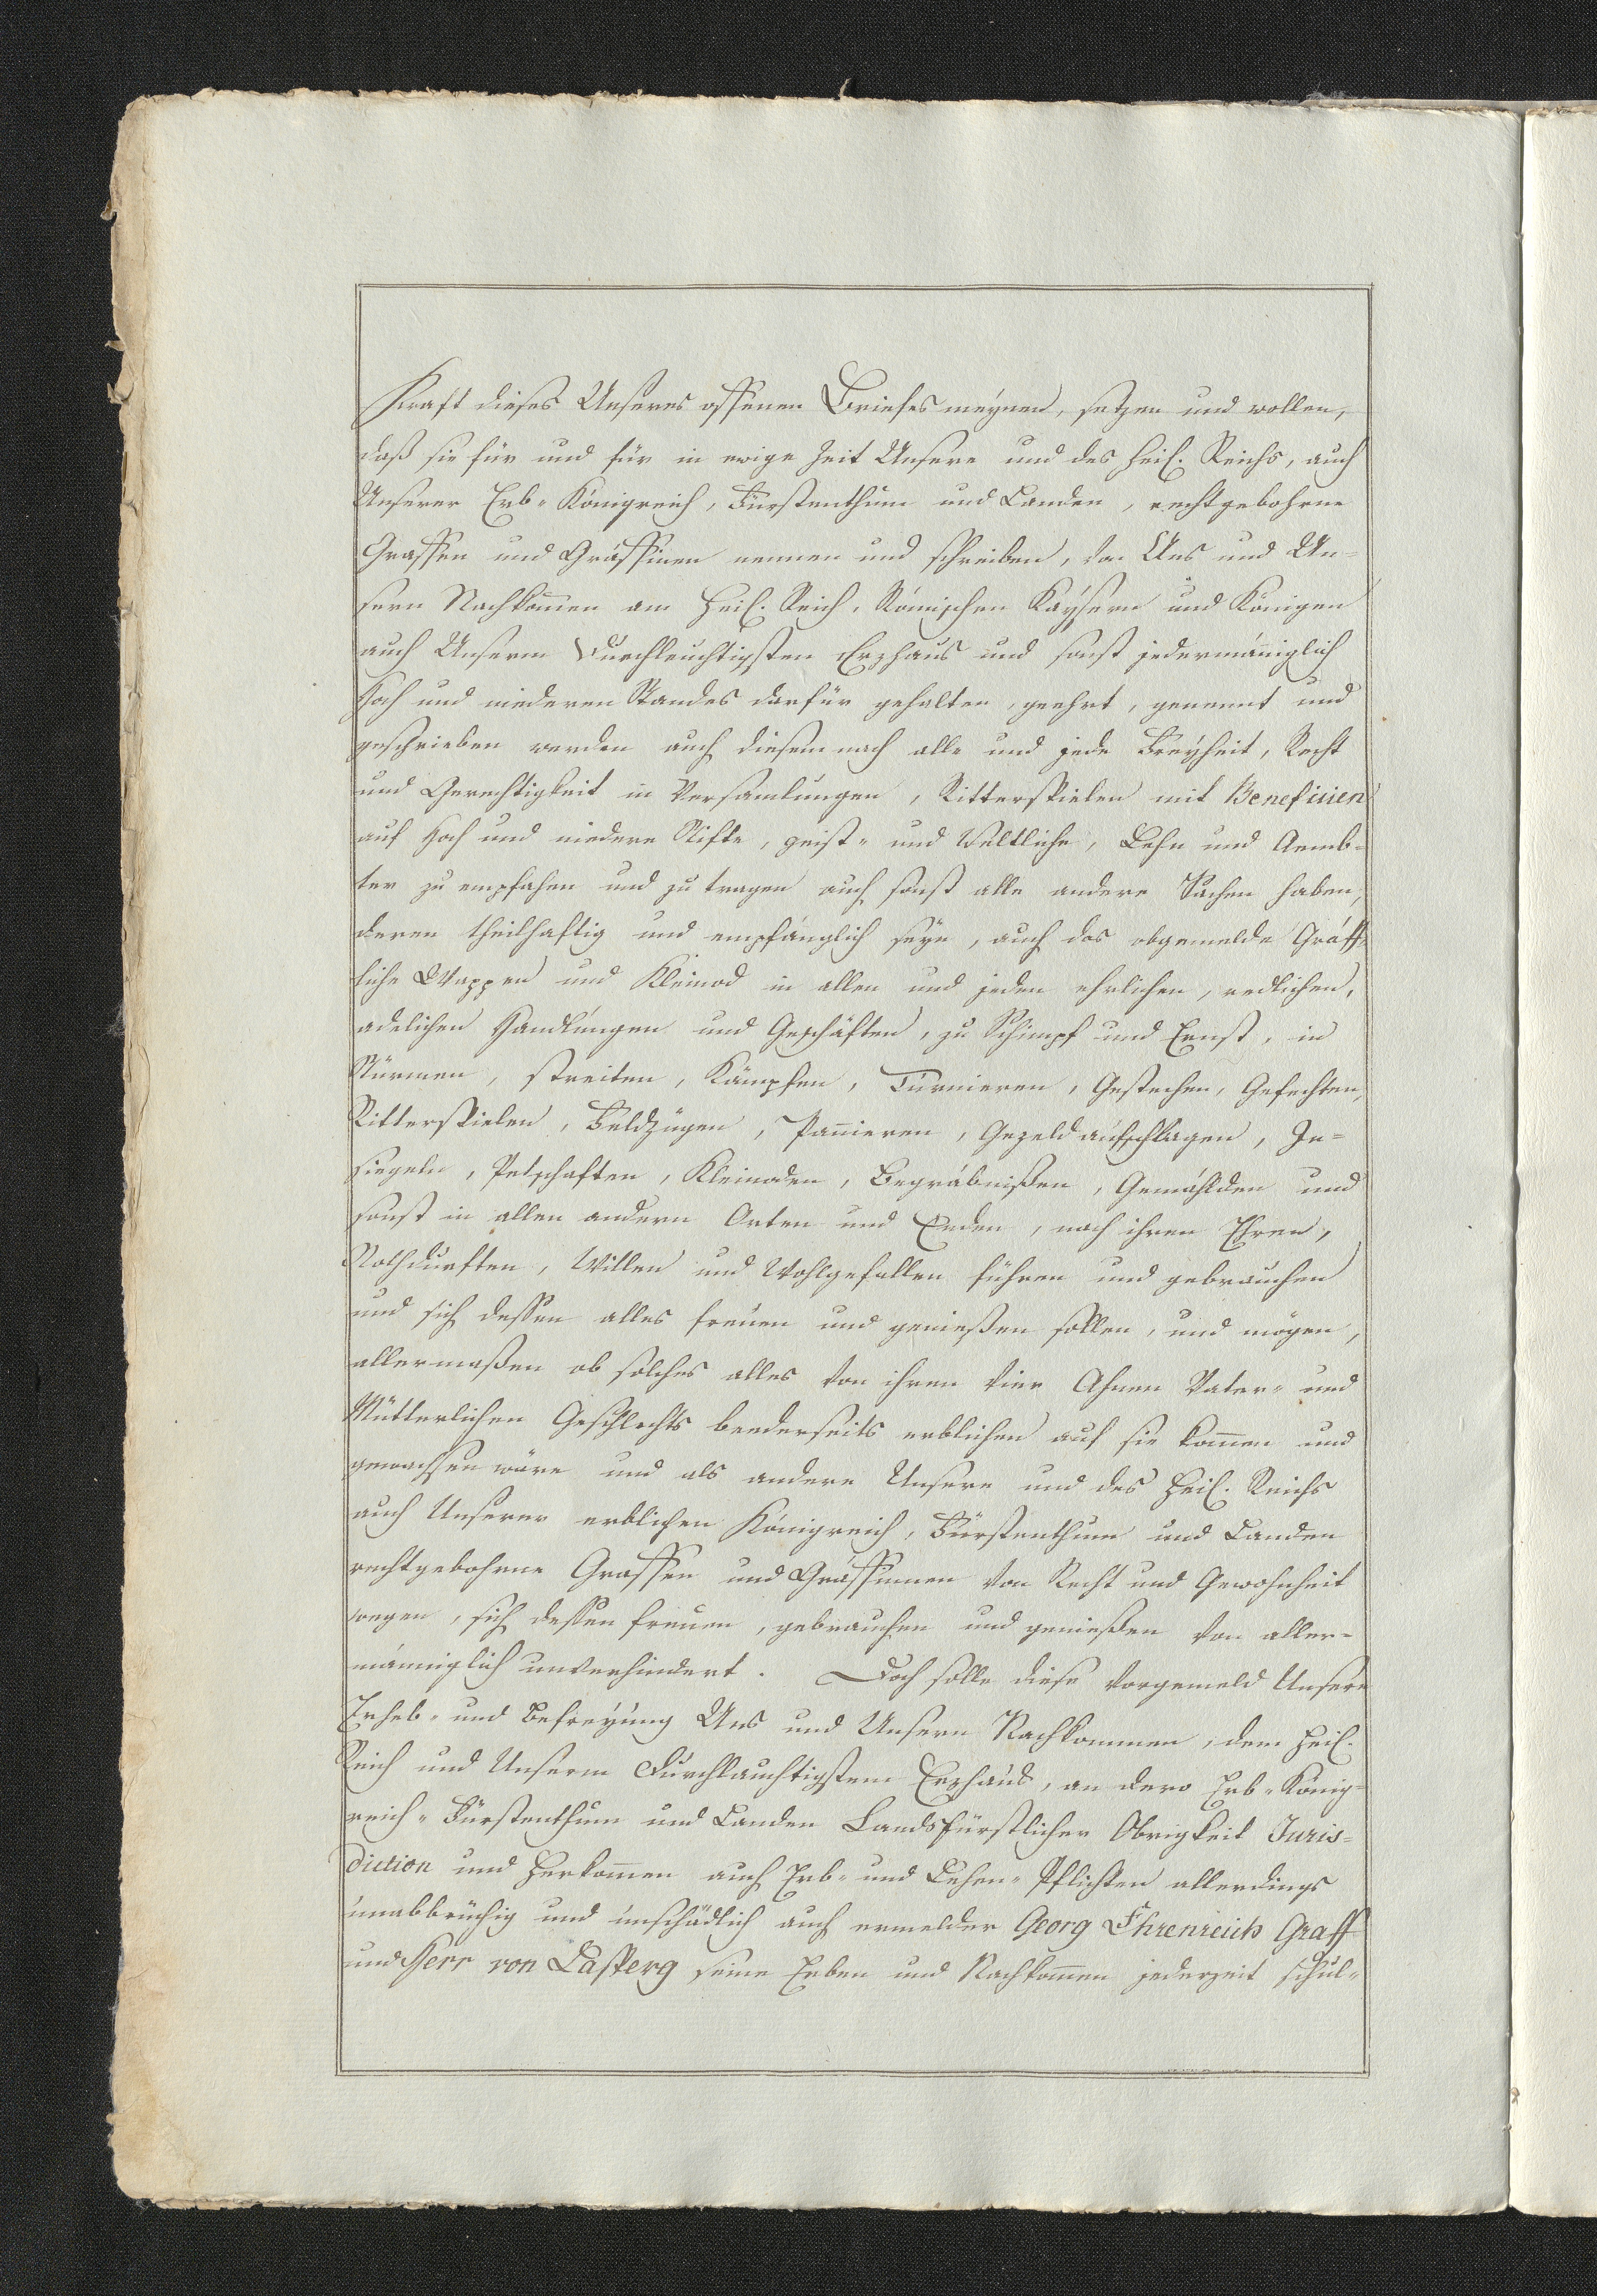 Kraft dieses Unseres offenen Briefes meÿnen, setzen und wollen,
daß sie für und für in ewige Zeit Unsere und des Heil. Reichs, auch
Unserer Erb-Königreich, Fürstenthum und Landen, rechtgebohrne
Graffen und Gräffinen nennen und schreiben, von Uns und Un-
sern Nachkom̄en am Heil. Reich, Römischen Kaÿsern und Königen
auch Unserem Durchleuchtigsten Erzhaus und sonst jedermäniglich
hoch und niederen Standes darfür gehalten, geehrt, genennt und
geschrieben werden auch diesem nach alle und jede Freÿheit, Recht
und Gerechtigkeit in Versam̄lungen, Ritterspielen mit Beneficien
auf hoch und niedere Stifte, geist- und Weltliche, Lehn und Aemb-
ter zu empfahen und zu tragen auch sonst alle andere Sachen haben,
deren theilhaftig und empfänglich seÿn, auch das obgemelde Gräff-
liche Wappen und Kleinod in allen und jeden ehrlichen, redlichen,
adelichen Handlungen und Geschäften, zu Schimpf und Ernst, in
Stürmen, streiten, Kämpfen, Turnieren, Gestechen, Gefechten,
Ritterspielen, Feldzügen, Pannieren, Gezeld aufschlagen, In-
siegeln, Petschaften, Kleinoden, Begräbnißen, Gemählden und
sonst in allen andern Orten und Enden, nach ihren Ehren,
Nothdurften, Willen und Wohlgefallen führen und gebrauchen
und sich dessen alles freuen und genießen sollen, und mögen,
allermaßen ob solches alles von ihren vier Ahnen Vater- und
Mütterlichen Geschlechts beederseits erblichen auf sie kom̄en und
gewachsen wäre und als andere Unsere und des Heil. Reichs
auch Unserer erblichen Königreich, Fürstenthum und Landen
rechtgebohrne Graffen und Gräffinnen von Recht und Gewohnheit
wegen, sich dessen freuen, gebrauchen und genießen von aller-
männiglich unverhindert. Doch solle diese vorgemeld Unsere
Erheb- und Befreÿung Uns und Unsern Nachkommen, dem Heil.
Reich und Unserm Durchlauchtigstem Erzhaus, an dero Erb-König-
reich-Fürstenthum und Landen Landsfürstlicher Obrigkeit Juris-
diction und Herkom̄en auch Erb- und Lehen-Pflichten allerdings
unabbrüchig und unschädlich auch ermelder Georg Ehrenreich Graff
und Herr von Lasperg seine Erben und Nachkom̄en jederzeit schul-